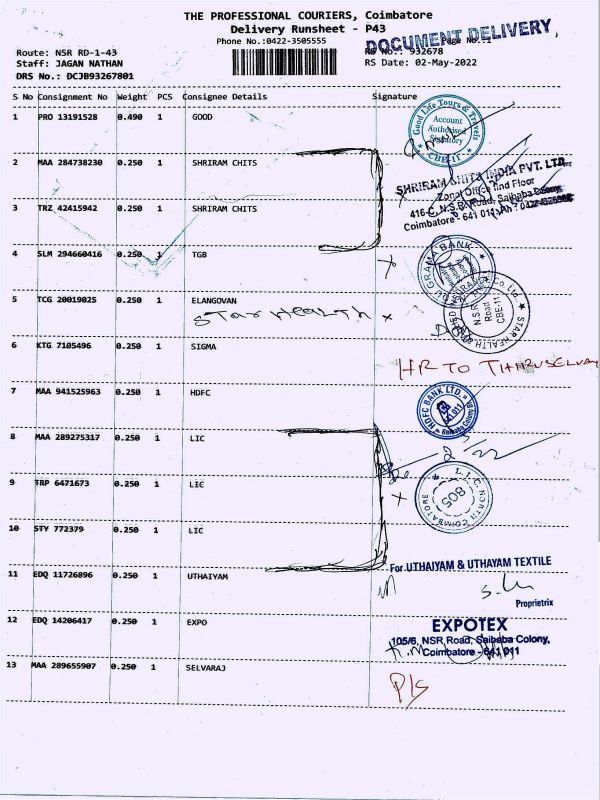 THE PROFESSIONAL COURIERS, Coimbatore
Delivery Runsheet - P43
Phone No.:0422-3505555
Page No.:1
DOCUMENT DELIVERY
Route: NSR RD-1-43
RS No.: 932678
Staff: JAGAN NATHAN
RS Date: 02-May-2022
DRS No.: DCJB93267801
S No Consignment No Weight PCS Consignee Details Signature
1 PRO 13191528 0.490 1 GOOD
Good Life Tours & Travels
Account
Authorised
Signatory
CBE-11
2 MAA 284738230 0.250 1 SHRIRAM CHITS
SHRIRAM CHITS INDIA PVT. LTD.
Zonal Office IInd Floor
416-C, N.S.R. Road, Saibaba Colony
Coimbatore - 641 011
3 TRZ 42415942 0.250 1 SHRIRAM CHITS
4 SLM 294660416 0.250 1 TGB
GRAMA BANK
5 TCG 20019025 0.250 1 ELANGOVAN
STAR HEALTH x
STAR HEALTH
N.S.R.
Road
CBE-11
Co Ltd
6 KTG 7105496 0.250 1 SIGMA
HR TO THIRUSELVAM
7 MAA 941525963 0.250 1 HDFC
HDFC BANK LTD.
8 MAA 289275317 0.250 1 LIC
9 TRP 6471673 0.250 1 LIC
L.I.C. NORTH COIMBATORE
805
10 STY 772379 0.250 1 LIC
For UTHAIYAM & UTHAYAM TEXTILE
11 EDQ 11726896 0.250 1 UTHAIYAM
Proprietrix
12 EDQ 14206417 0.250 1 EXPO
EXPOTEX
105/6, NSR Road, Saibaba Colony,
Coimbatore - 641 011
13 MAA 289655907 0.250 1 SELVARAJ
P/S